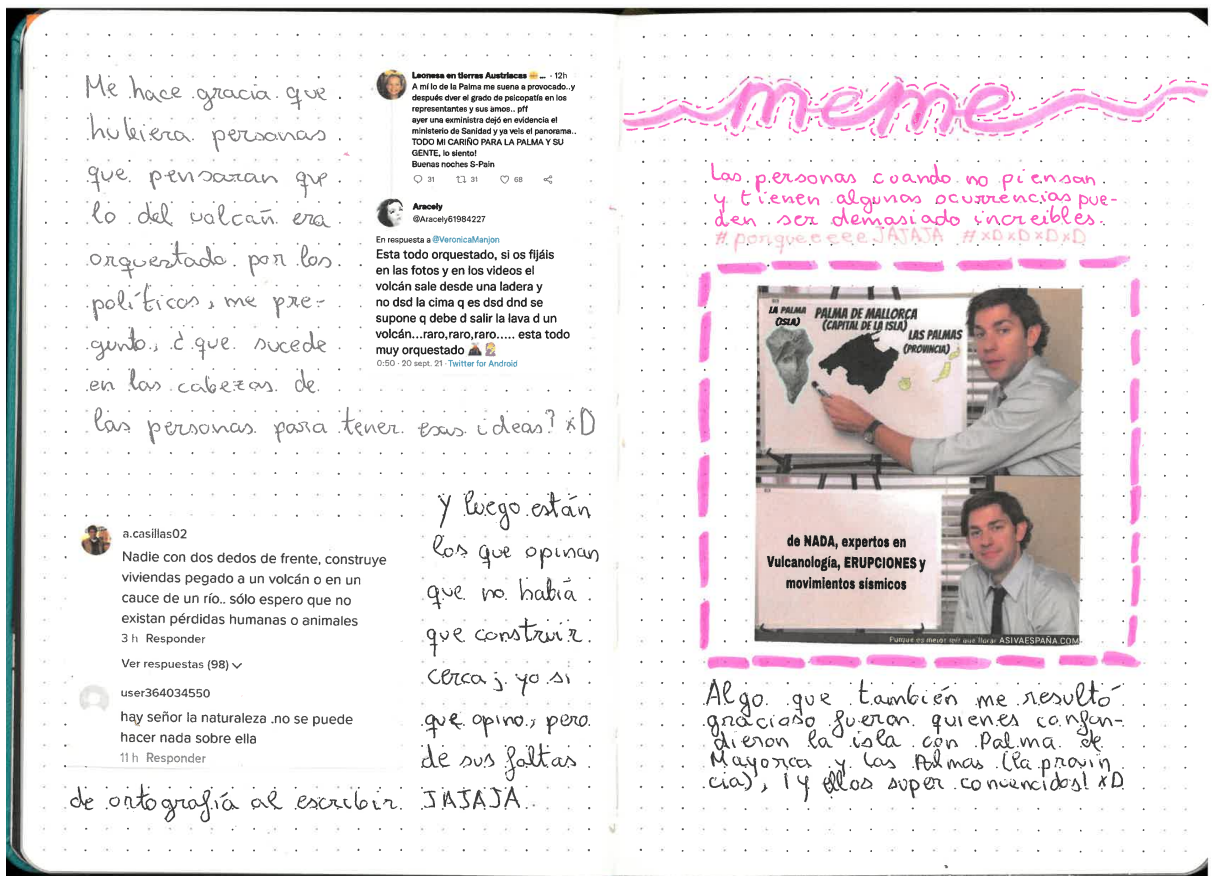 Me hace gracia que
hubiera personas
que pensaran que
lo del volcañ era
orquestado por los
políticos, me pre-
gunto, ¿que sucede
en las cabezas de
las personas para tener esas ideas? xD
Leonesa en tierras Austriacas ... · 12h
A mí lo de la Palma me suena a provocado..y
después dver el grado de psicopatía en los
representantes y sus amos.. pff
ayer una exministra dejó en evidencia el
ministerio de Sanidad y ya veis el panorama..
TODO MI CARIÑO PARA LA PALMA Y SU
GENTE, lo siento!
Buenas noches S-Pain
31 31 68
Aracely
@Aracely61984227
En respuesta a @VeronicaManjon
Esta todo orquestado, si os fijáis
en las fotos y en los videos el
volcán sale desde una ladera y
no dsd la cima q es dsd dnd se
supone q debe d salir la lava d un
volcán...raro,raro,raro..... esta todo
muy orquestado
0:50 · 20 sept. 21 · Twitter for Android
a.casillas02
Nadie con dos dedos de frente, construye
viviendas pegado a un volcán o en un
cauce de un río.. sólo espero que no
existan pérdidas humanas o animales
3 h Responder
Ver respuestas (98)
user364034550
hay señor la naturaleza .no se puede
hacer nada sobre ella
11 h Responder
Y luego están
los que opinan
que no había
que construir
cerca j. yo si
que opino, pero
de sus faltas
de ortografía al escribir. JAJAJA
meme
Las personas cuando no piensan
y tienen algunas ocurrencias pue-
den ser demasiado increibles.
#porqueeeeeJAJAJA #xDxDxDxD
LA PALMA
(ISLA)
PALMA DE MALLORCA
(CAPITAL DE LA ISLA)
LAS PALMAS
(PROVINCIA)
de NADA, expertos en
Vulcanología, ERUPCIONES y
movimientos sísmicos
Porque es mejor reir que llorar ASIVAESPAÑA.COM
Algo que también me resultó
gracioso fueron quienes confun-
dieron la isla con Palma de
Mayorca y Las Palmas (la provin
cia), ¡Y ellos super convencidos! xD